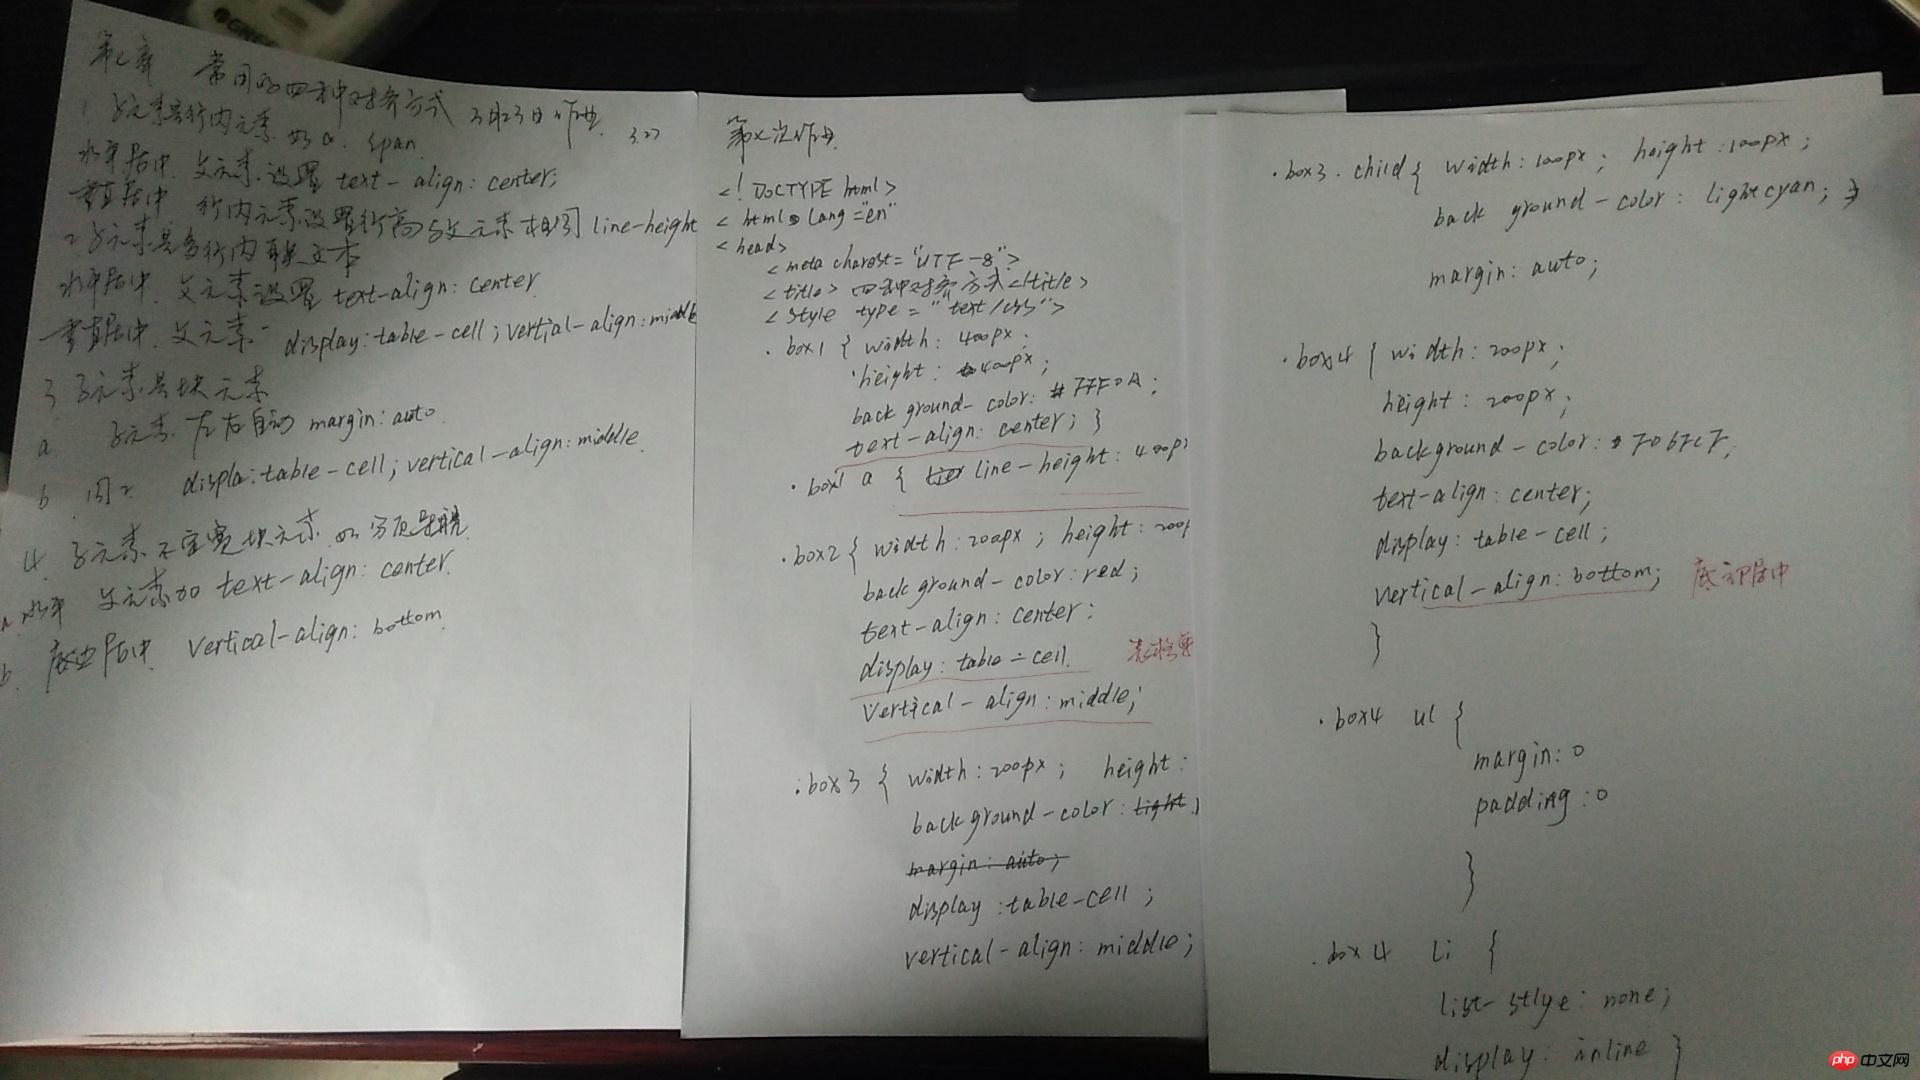 第七章 常用的四种对齐方式 3月23日作业
3.23
1 子元素是行内元素 如 a. span
水平居中. 父元素设置 text-align: center;
垂直居中 行内元素设置行高与父元素相同 line-height
2 子元素是多行内联文本
水平居中. 父元素设置 text-align: center
垂直居中. 父元素 display: table-cell; vertial-align: middle
3 子元素是块元素
a 子元素. 左右自动 margin: auto
b 同2 displa: table-cell; vertical-align: middle
4. 子元素不定宽块元素. 如分页导航
a. 水平 父元素加 text-align: center.
b. 底边居中. vertical-align: bottom
第七次作业
<! DOCTYPE html>
< html lang="en"
< head>
<meta charest="UTF-8">
<title> 四种对齐方式</title>
<style type="text/css">
.box1 { width: 400px;
height: 400px;
background-color: #FFF0A;
text-align: center; }
.box1 a { line-height: 400p
.box2 { width: 200px; height: 200p
background-color: red;
text-align: center:
display: table-cell. 表格单
vertical-align: middle;
.box3 { width: 200px; height:
background-color: light
margin: auto;
display: table-cell;
vertical-align: middle;
.box3 .child{ width: 100px; height: 100px;
background-color: lightcyan; }
margin: auto;
.box4 { width: 200px;
height: 200px;
background-color: F06FCF;
text-align: center;
display: table-cell;
vertical-align: bottom; 底部居中
}
.box4 ul {
margin: 0
padding: 0
}
.box4 li {
list-stlye: none;
display: inline }
php 中文网